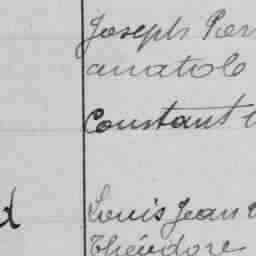 Joseph Pier
anatole
Constant
Louis Jean
Théodore